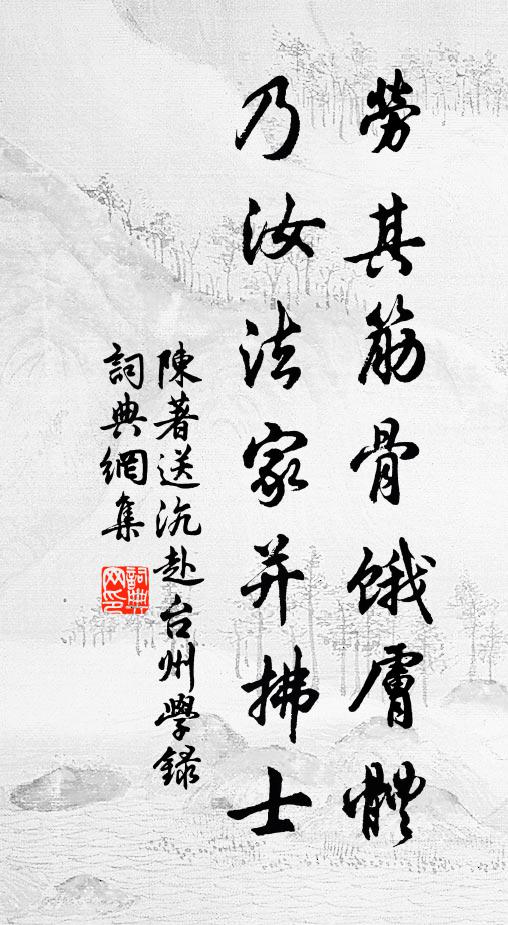 勞其筋骨餓膚體
乃汝法家并拂士
陳著送沆赴台州學錄
詞典網集
詞典网印